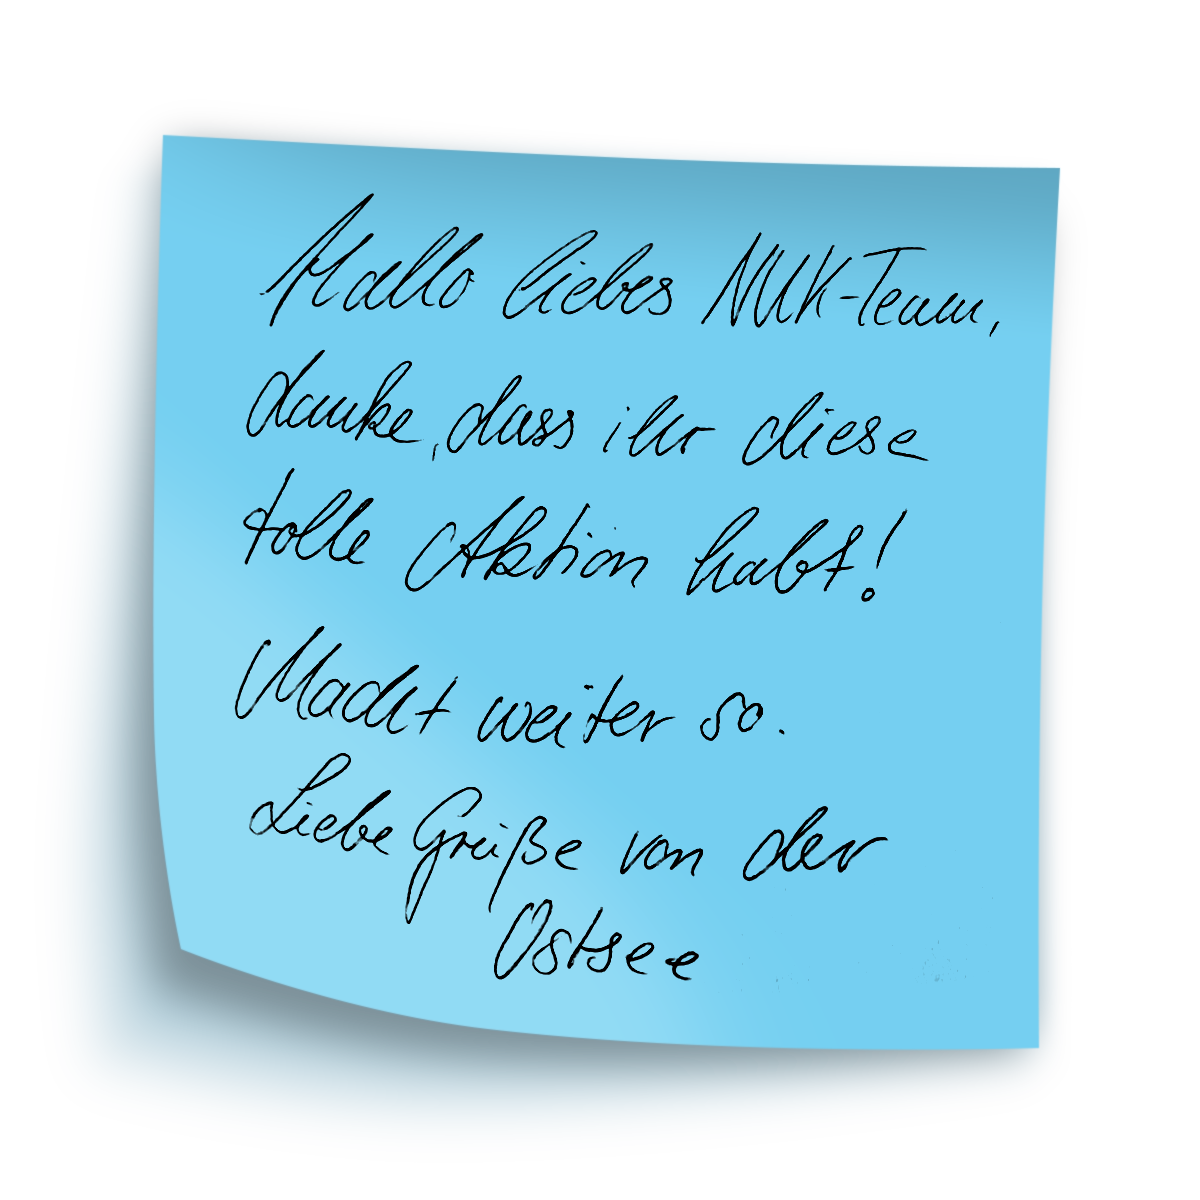 Hallo liebes NUK-Team,
danke, dass ihr diese
tolle Aktion habt!
Macht weiter so.
Liebe Grüße von der
Ostsee